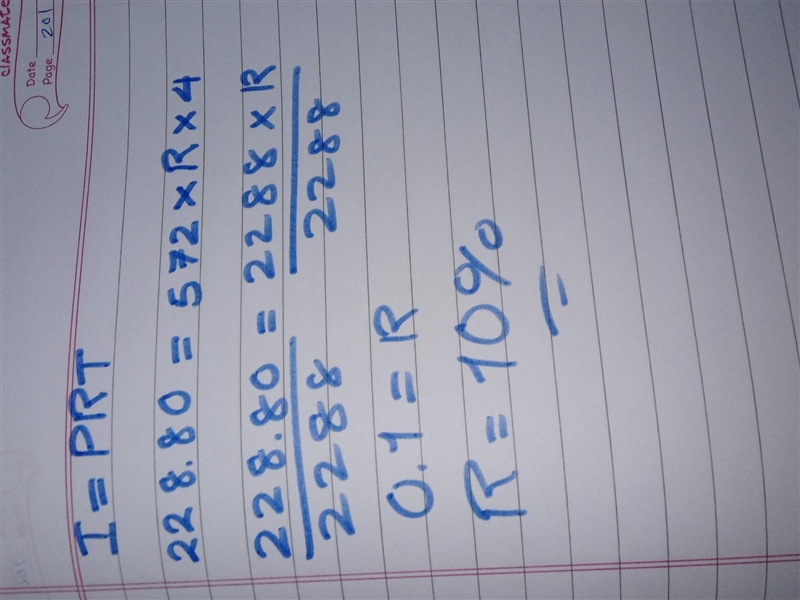 CLASSMATE
Date
Page 201
I = PRT
228.80 = 572 x R x 4
228.80 = 2288 x R
2288 2288
0.1 = R
R = 10%